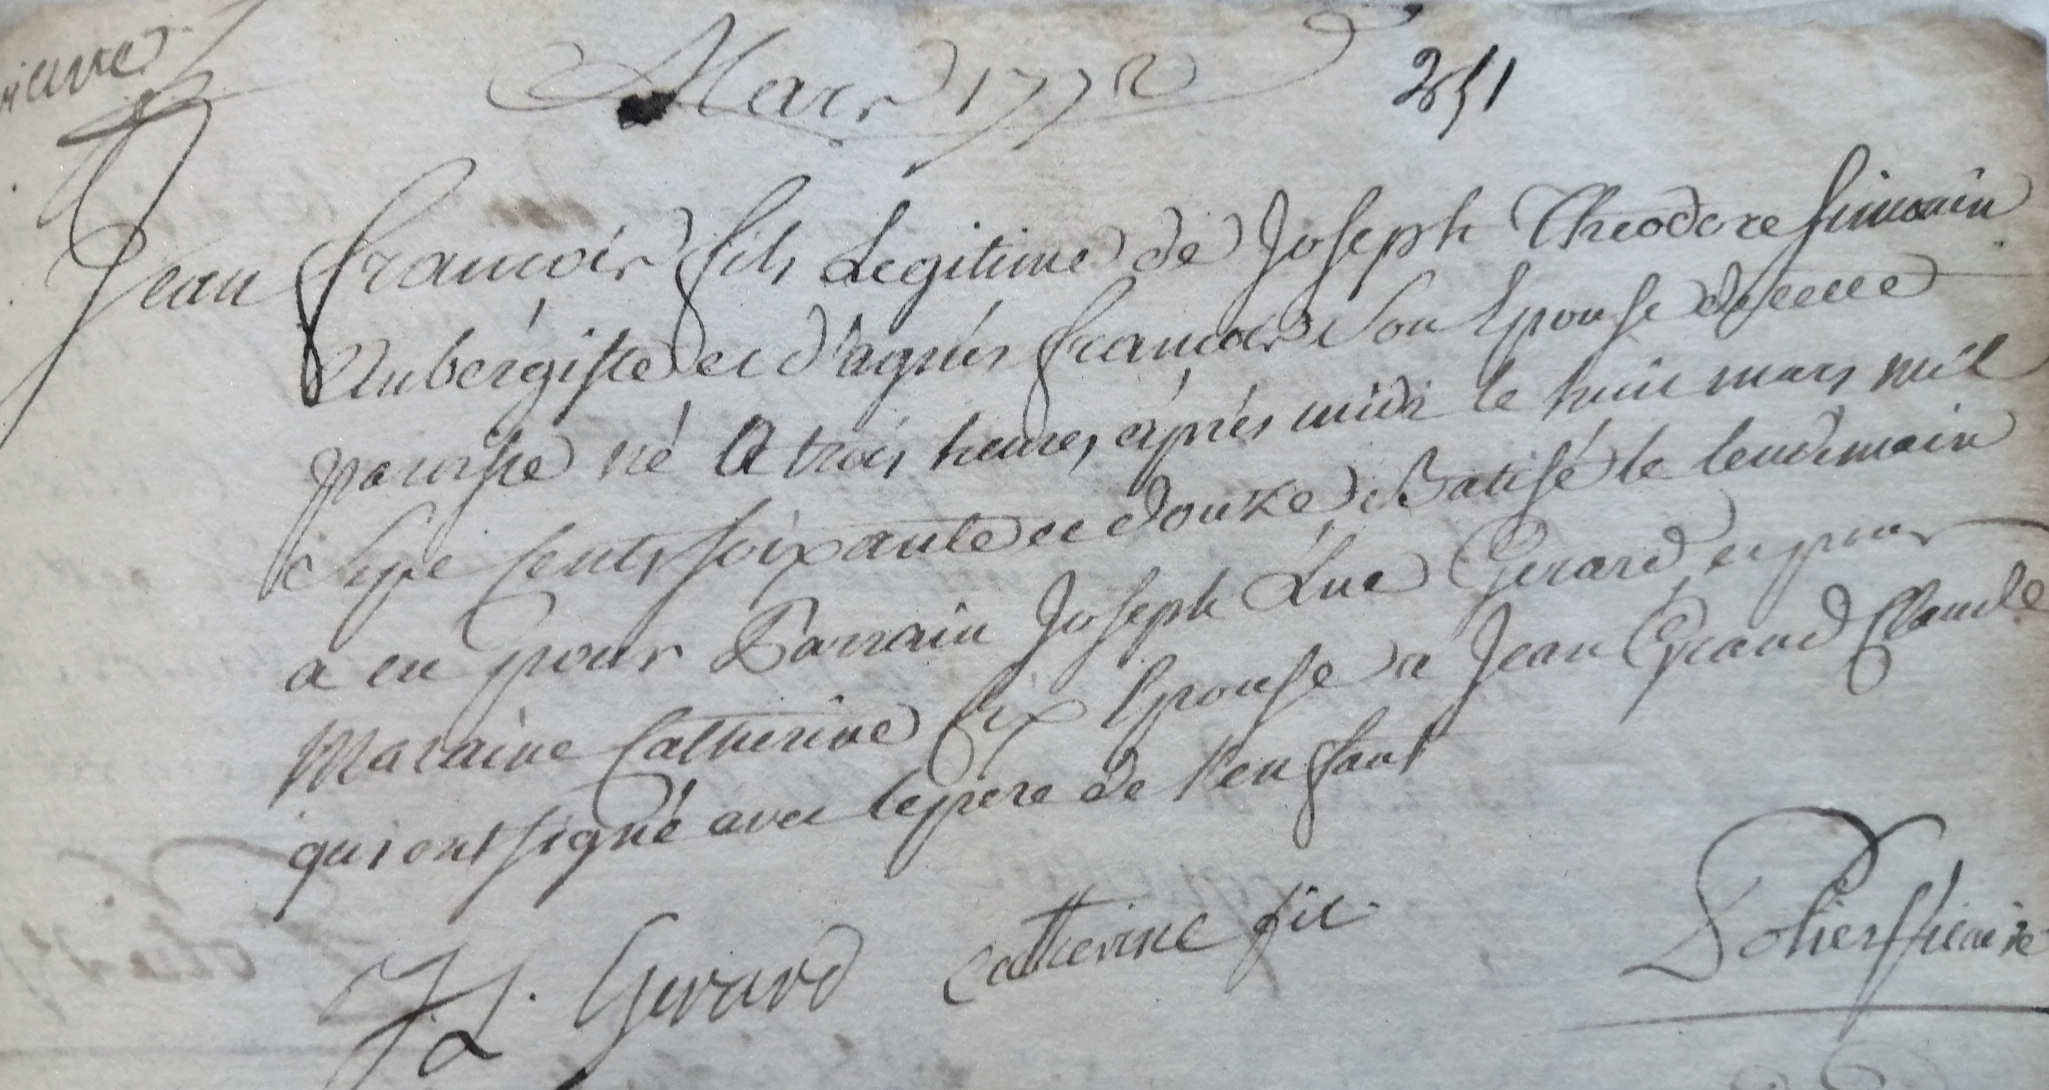 vicaire
Mars 1772 251
Jean françois fils Legitime de Joseph Theodore Simonin
Aubergiste et d'agnés françois Son Epouse de cette
paroisse né a trois heures aprés midi le huit mars mil
Sept Cents soixante et douze Batisé le lendemain
a eu pour Parrain Joseph Luc Gerard et pour
Maraine Catherine fix Epouse a Jean Grand Claude
qui ont signé avec le pere de l'enfant
J. L. Gerard Catherine fix Potier Vicaire